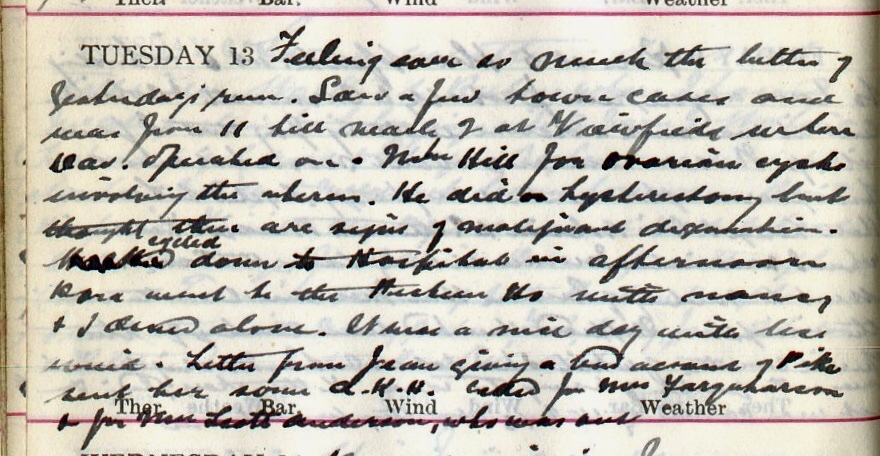 Ther. Bar. Wind Weather
TUESDAY 13 Feeling ever so much the better of
yesterday's run. Saw a few town cases and
was from 11 till nearly 2 at Viewfield where
operated on Mrs Hill for ovarian cysts
involving the uterus. He did a hysterectomy but
thought there are signs of malignant degeneration.
cycled down to Hospital in afternoon
went to the with Nancy
& I dined alone. It was a nice day with less
wind. Letter from Jean giving a bad account of Pike
sent her some Called for Mrs Farquharson
Ther. Bar. Wind Weather
& for Mrs Scott Anderson, who was out
WEDNESDAY